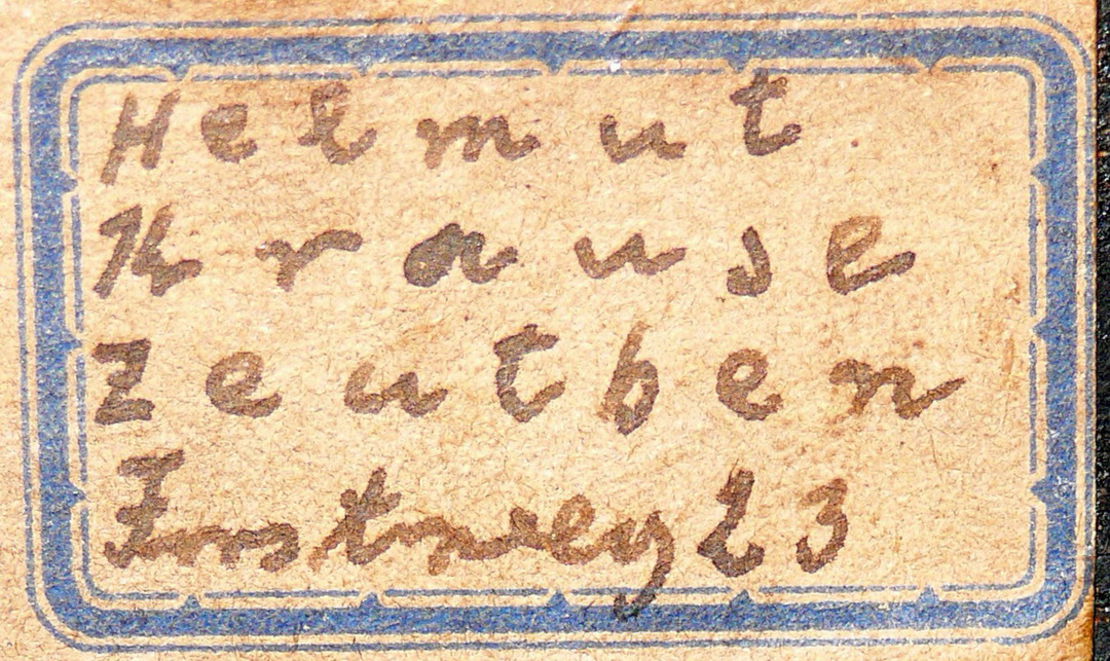 Helmut
Krause
Zeuthen
Forstweg 23